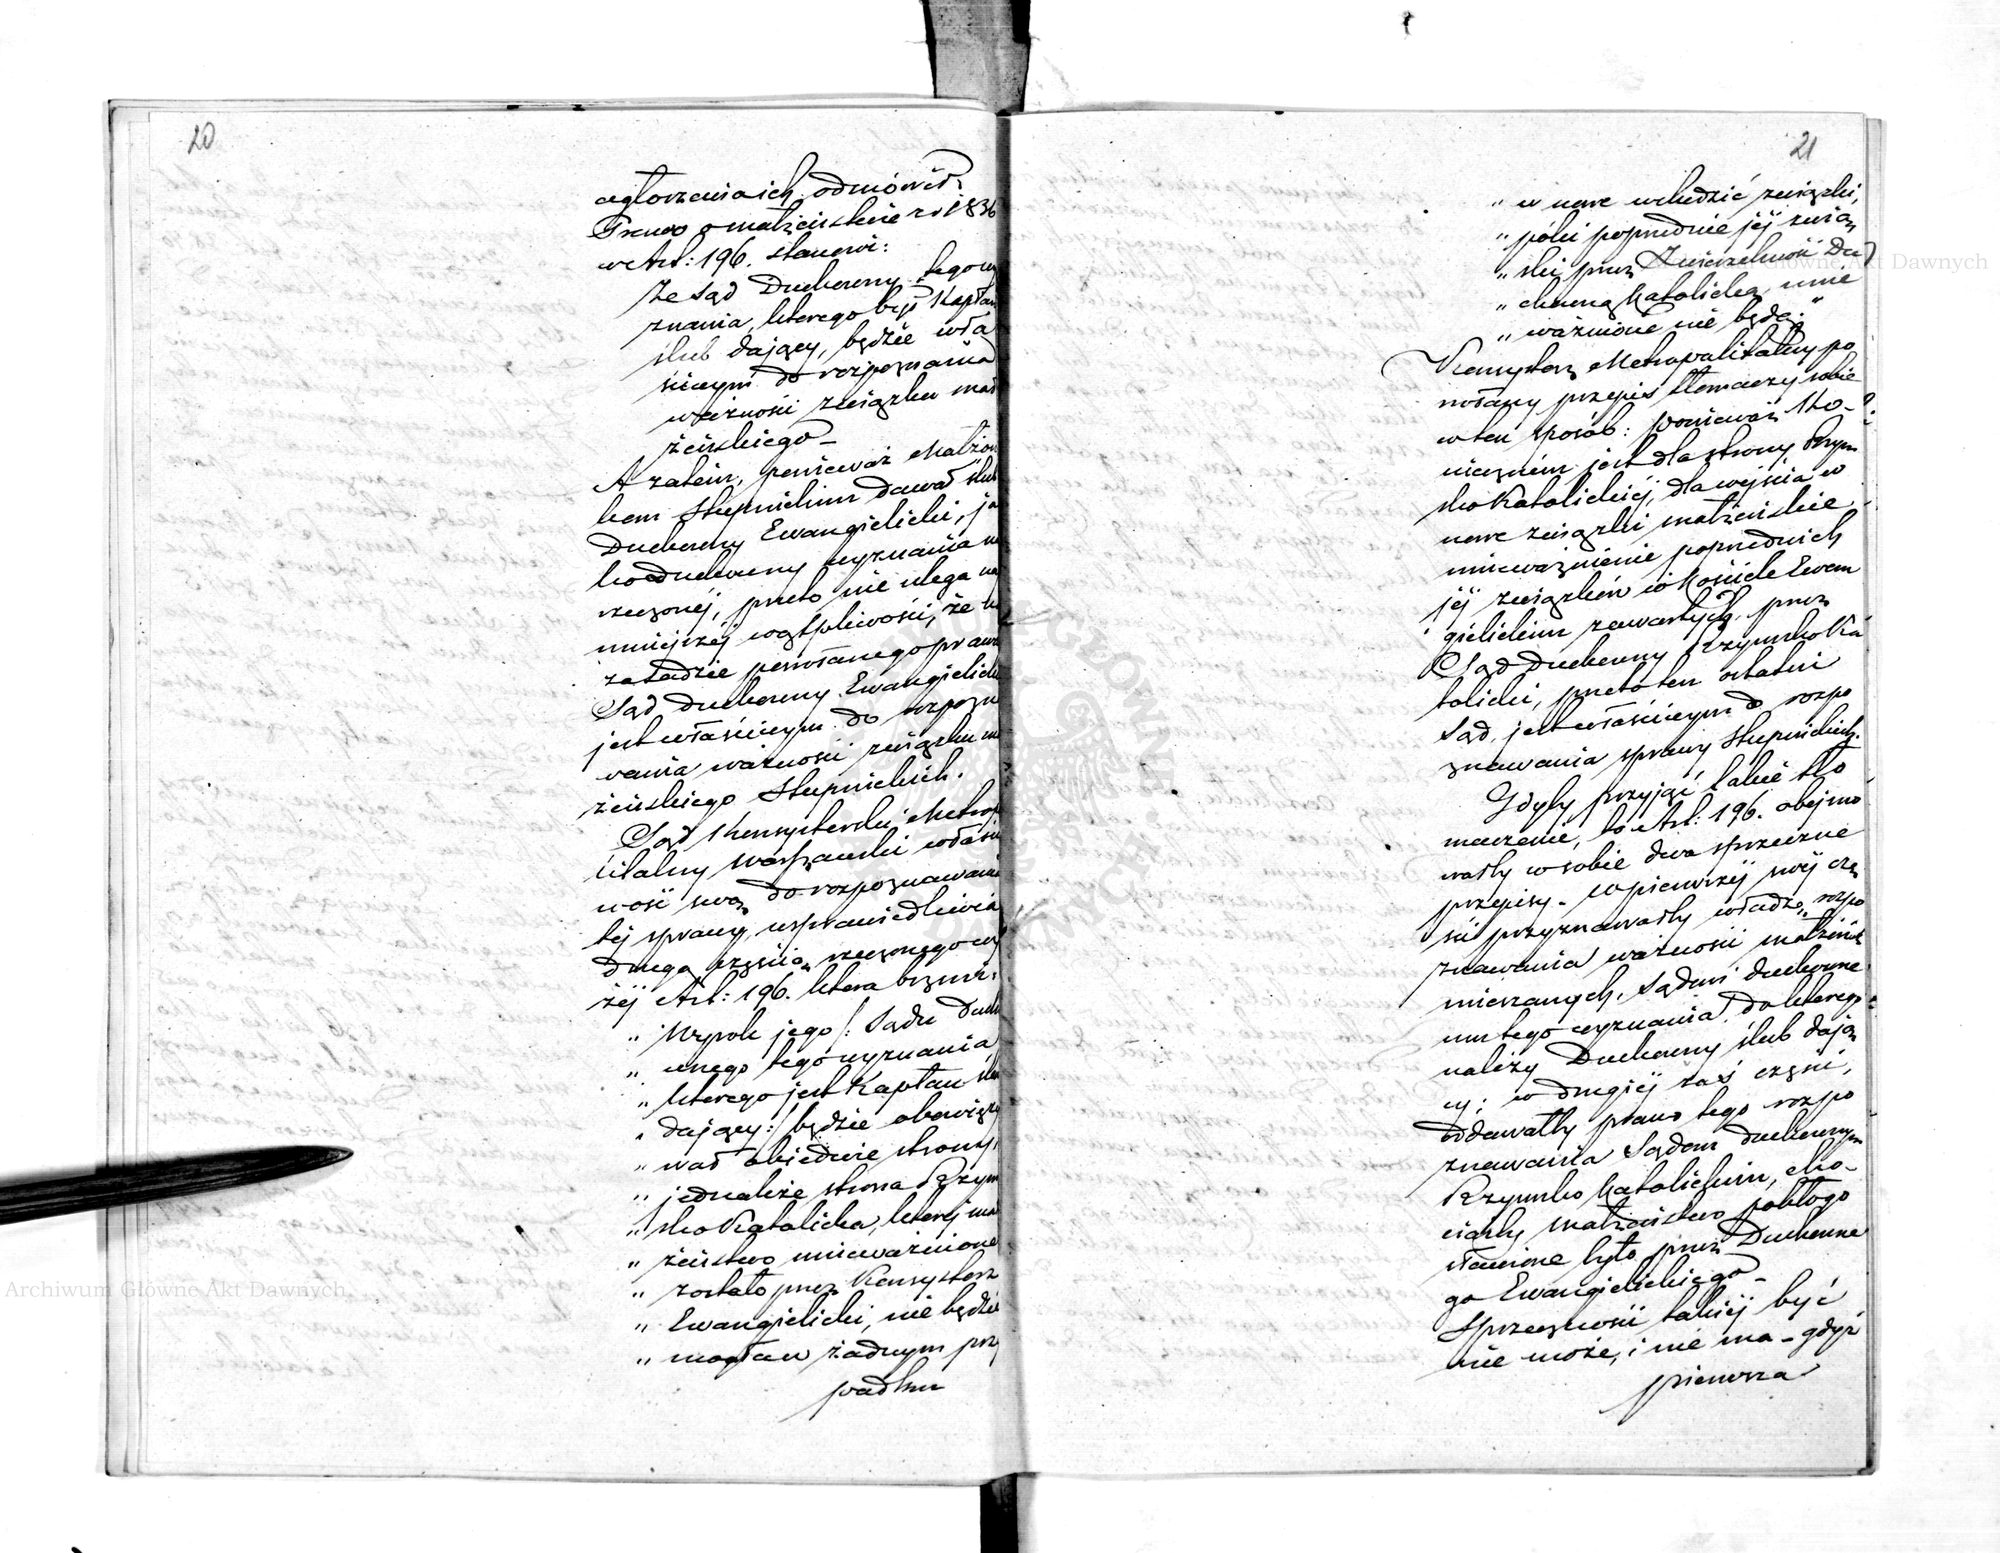 20
ogłoszenia ich odmówił.
Prawo o małżeństwie z r. 1836
w Art: 196. stanowi:
Że Sąd Duchowny tego wy
znania, którego był Kapłan
ślub dający, będzie wła
ściwym do rozpoznania
ważności związku mał
żeńskiego –
A zatem, ponieważ Małżon
kom Słupnickim dawał ślub
Duchowny Ewangielicki, ja
ko duchowny wyznania na
rzeczonej, przeto nie ulega naj
mniejszej wątpliwości, że na
zasadzie powołanego prawa
Sąd duchowny Ewangielicki
jest właściwym do rozpozna
wania ważności związku mał
żeńskiego Słupnickich.
Sąd Konsystorski Metropo
litalny Warszawski właści
wość swą do rozpoznawania
tej sprawy, usprawiedliwia
drugą częścią rzeczonego wy
żej Art: 196. która brzmi:
„ Wyrok jego /: Sądu Ducho
„ wnego tego wyznania
„ którego jest Kapłan ślub
„ dający :/ będzie obowiązy
„ wał obiedwie strony,
„ jednakże strona Rzym
„ sko Katolicka, której mał
„ żeństwo unieważnione
„ zostało przez Konsystorz
„ Ewangielicki, nie będzie
„ mogła w żadnym przy
padku
21
„ w nowe wchodzić związki,
„ póki poprzednie jej zwią
„ ski przez Zwierzchność Du
„ chowną Katolicką unie
„ ważnione nie będą.“
Konsystorz Metropolitalny po
wołany przepis tłomaczy sobie
w ten sposób: ponieważ ko-
niecznem jest dla strony Rzym
sko Katolickiej, dla wejścia w
nowe związki małżeńskie
unieważnienie poprzednich
jej związków w Kościele Ewan
gielickim zawartych, przez
Sąd duchowny Rzymsko Ka
tolicki, przeto ten ostatni
Sąd, jest właściwym do rozpo
znawania sprawy Słupnickich.
Gdyby przyjąć takie tło
maczenie, to Art: 196. obejmo
wałby w sobie dwa sprzeczne
przepisy. – W pierwszej swej czę
ści przyznawałby władzę rozpo
znawania ważności małżeństw
mieszanych, Sądowi duchowne
mu tego wyznania, do którego
należy Duchowny ślub dają
cy; w drugiej zaś części,
oddawałby prawo tego rozpo
znawania Sądom duchownym
Rzymsko Katolickim, cho-
ciażby małżeństwo pobłogo
sławione było przez Duchowne
go Ewangielickiego –
Sprzeczności takiej być
nie może, i nie ma – gdyż
pierwsza
Archiwum Główne Akt Dawnych